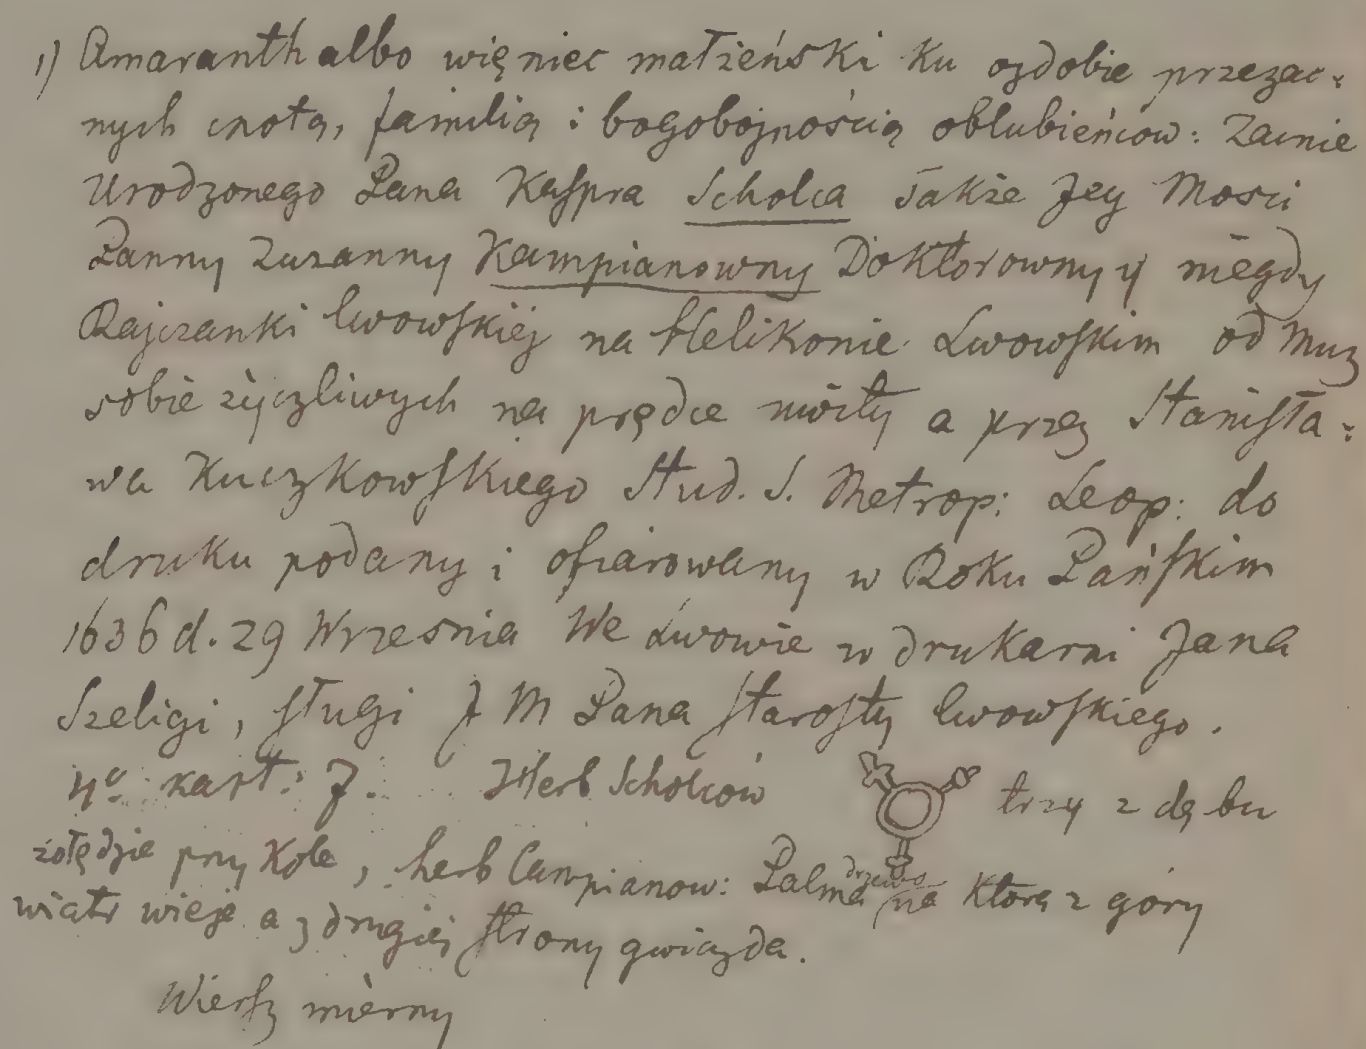 1) Amaranth albo więniec małżeński ku ozdobie przezac:
nych cnotą, familią i bogobojnością oblubieńcow: Zacnie
Urodzonego Pana Kaspra Scholca także Jey Mosci
Panny Zuzanny Kampianowny Doktorowny y niegdy
Rajczanki lwowskiéj na Helikonie Lwowskim od Muz
sobie życzliwych na prędce uwity a przez Stanisła:
wa Kuczkowskiego Stud. S. Metrop: Leop: do
druku podany i ofiarowany w Roku Pańskim
1636 d. 29 Wrzesnia We Lwowie w drukarni Jana
Szeligi, sługi J M Pana starosty lwowskiego.
4o kart: 7. Herb Scholców trzy z dębu
żołędzie przy Kole, herb Campianow: Palma drzewo na ktorą z góry
wiatr wieje a z drugiéj strony gwiazda.
Wiersz mierny